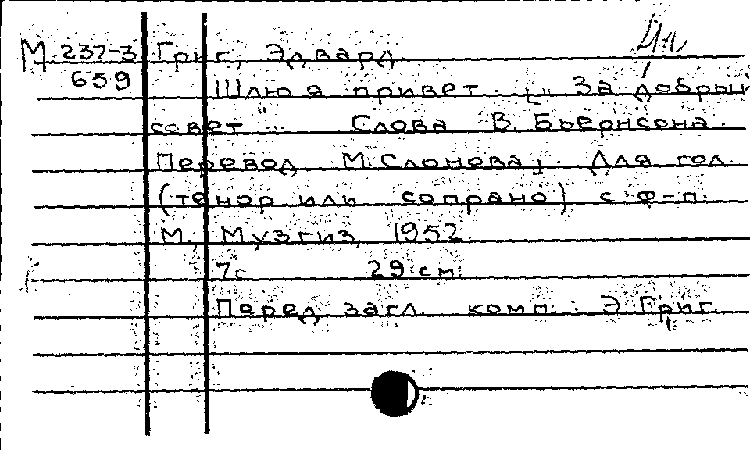 М 237-3 Григ, Эдвард.
659 Шлю я привет... "За добрый
совет"... Слова В. Бьернсона.
Перевод М. Слонова, Для гол.
(тенор или сопрано) с ф-п.
М., Музгиз, 1952.
7с. 29 см.
Перед загл. комп.: Э. Григ.